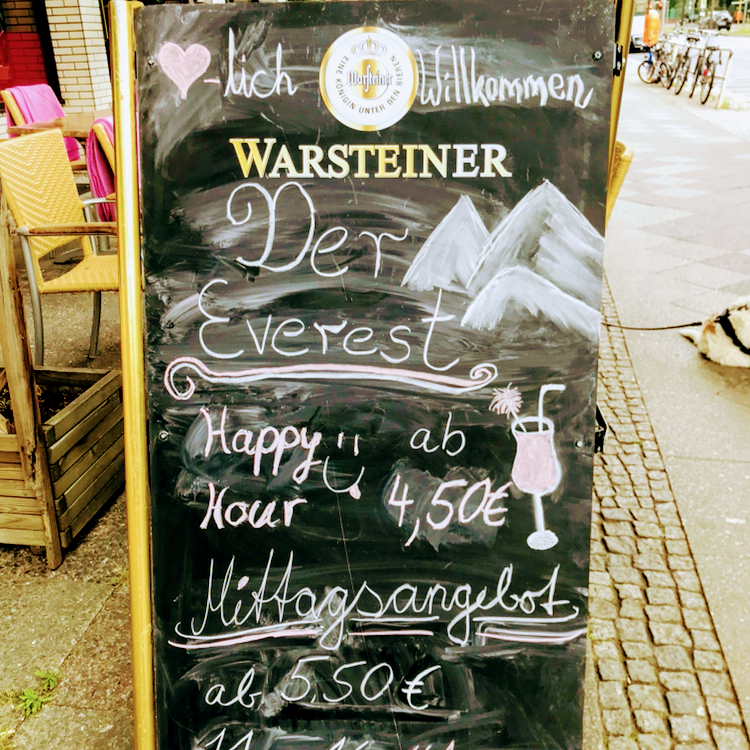 -lich Willkommen
EINE KÖNIGIN UNTER DEN BIEREN
Warsteiner
WARSTEINER
Der
Everest
Happy ab
Hour 4,50€
Mittagsangebot
ab 5,50 €